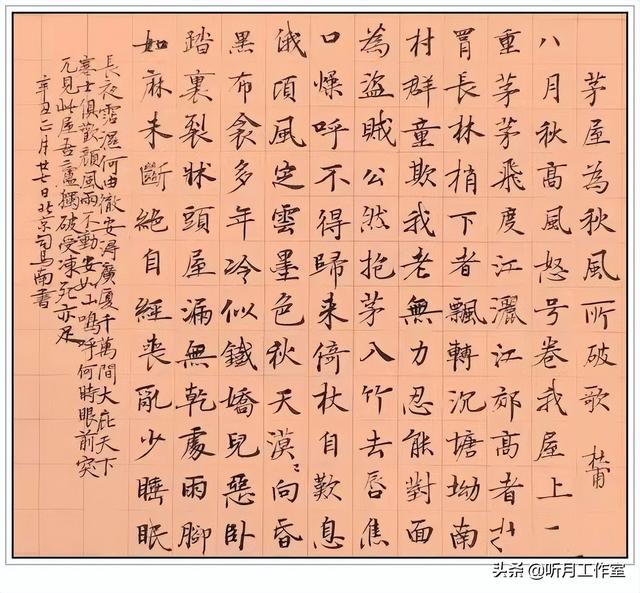 茅屋為秋風所破歌 杜甫
八月秋高風怒号卷我屋上一
重茅茅飛度江灑江郊高者
罥長林梢下者飄轉沉塘坳南
村群童欺我老無力忍能對面
為盜賊公然抱茅入竹去唇焦
口燥呼不得歸来倚杖自歎息
俄頃風定雲墨色秋天漠々向昏
黑布衾多年冷似鐵嬌兒惡卧
踏裏裂牀頭屋漏無乾處雨腳
如麻未斷絕自經喪亂少睡眠
長夜霑濕何由徹安得廣厦千萬間大庇天下
寒士俱歡顔風雨不動安如山嗚呼何時眼前突
兀見此屋吾廬獨破受凍死亦足
辛丑二月廿七日北京司馬南書
头条 @听月工作室